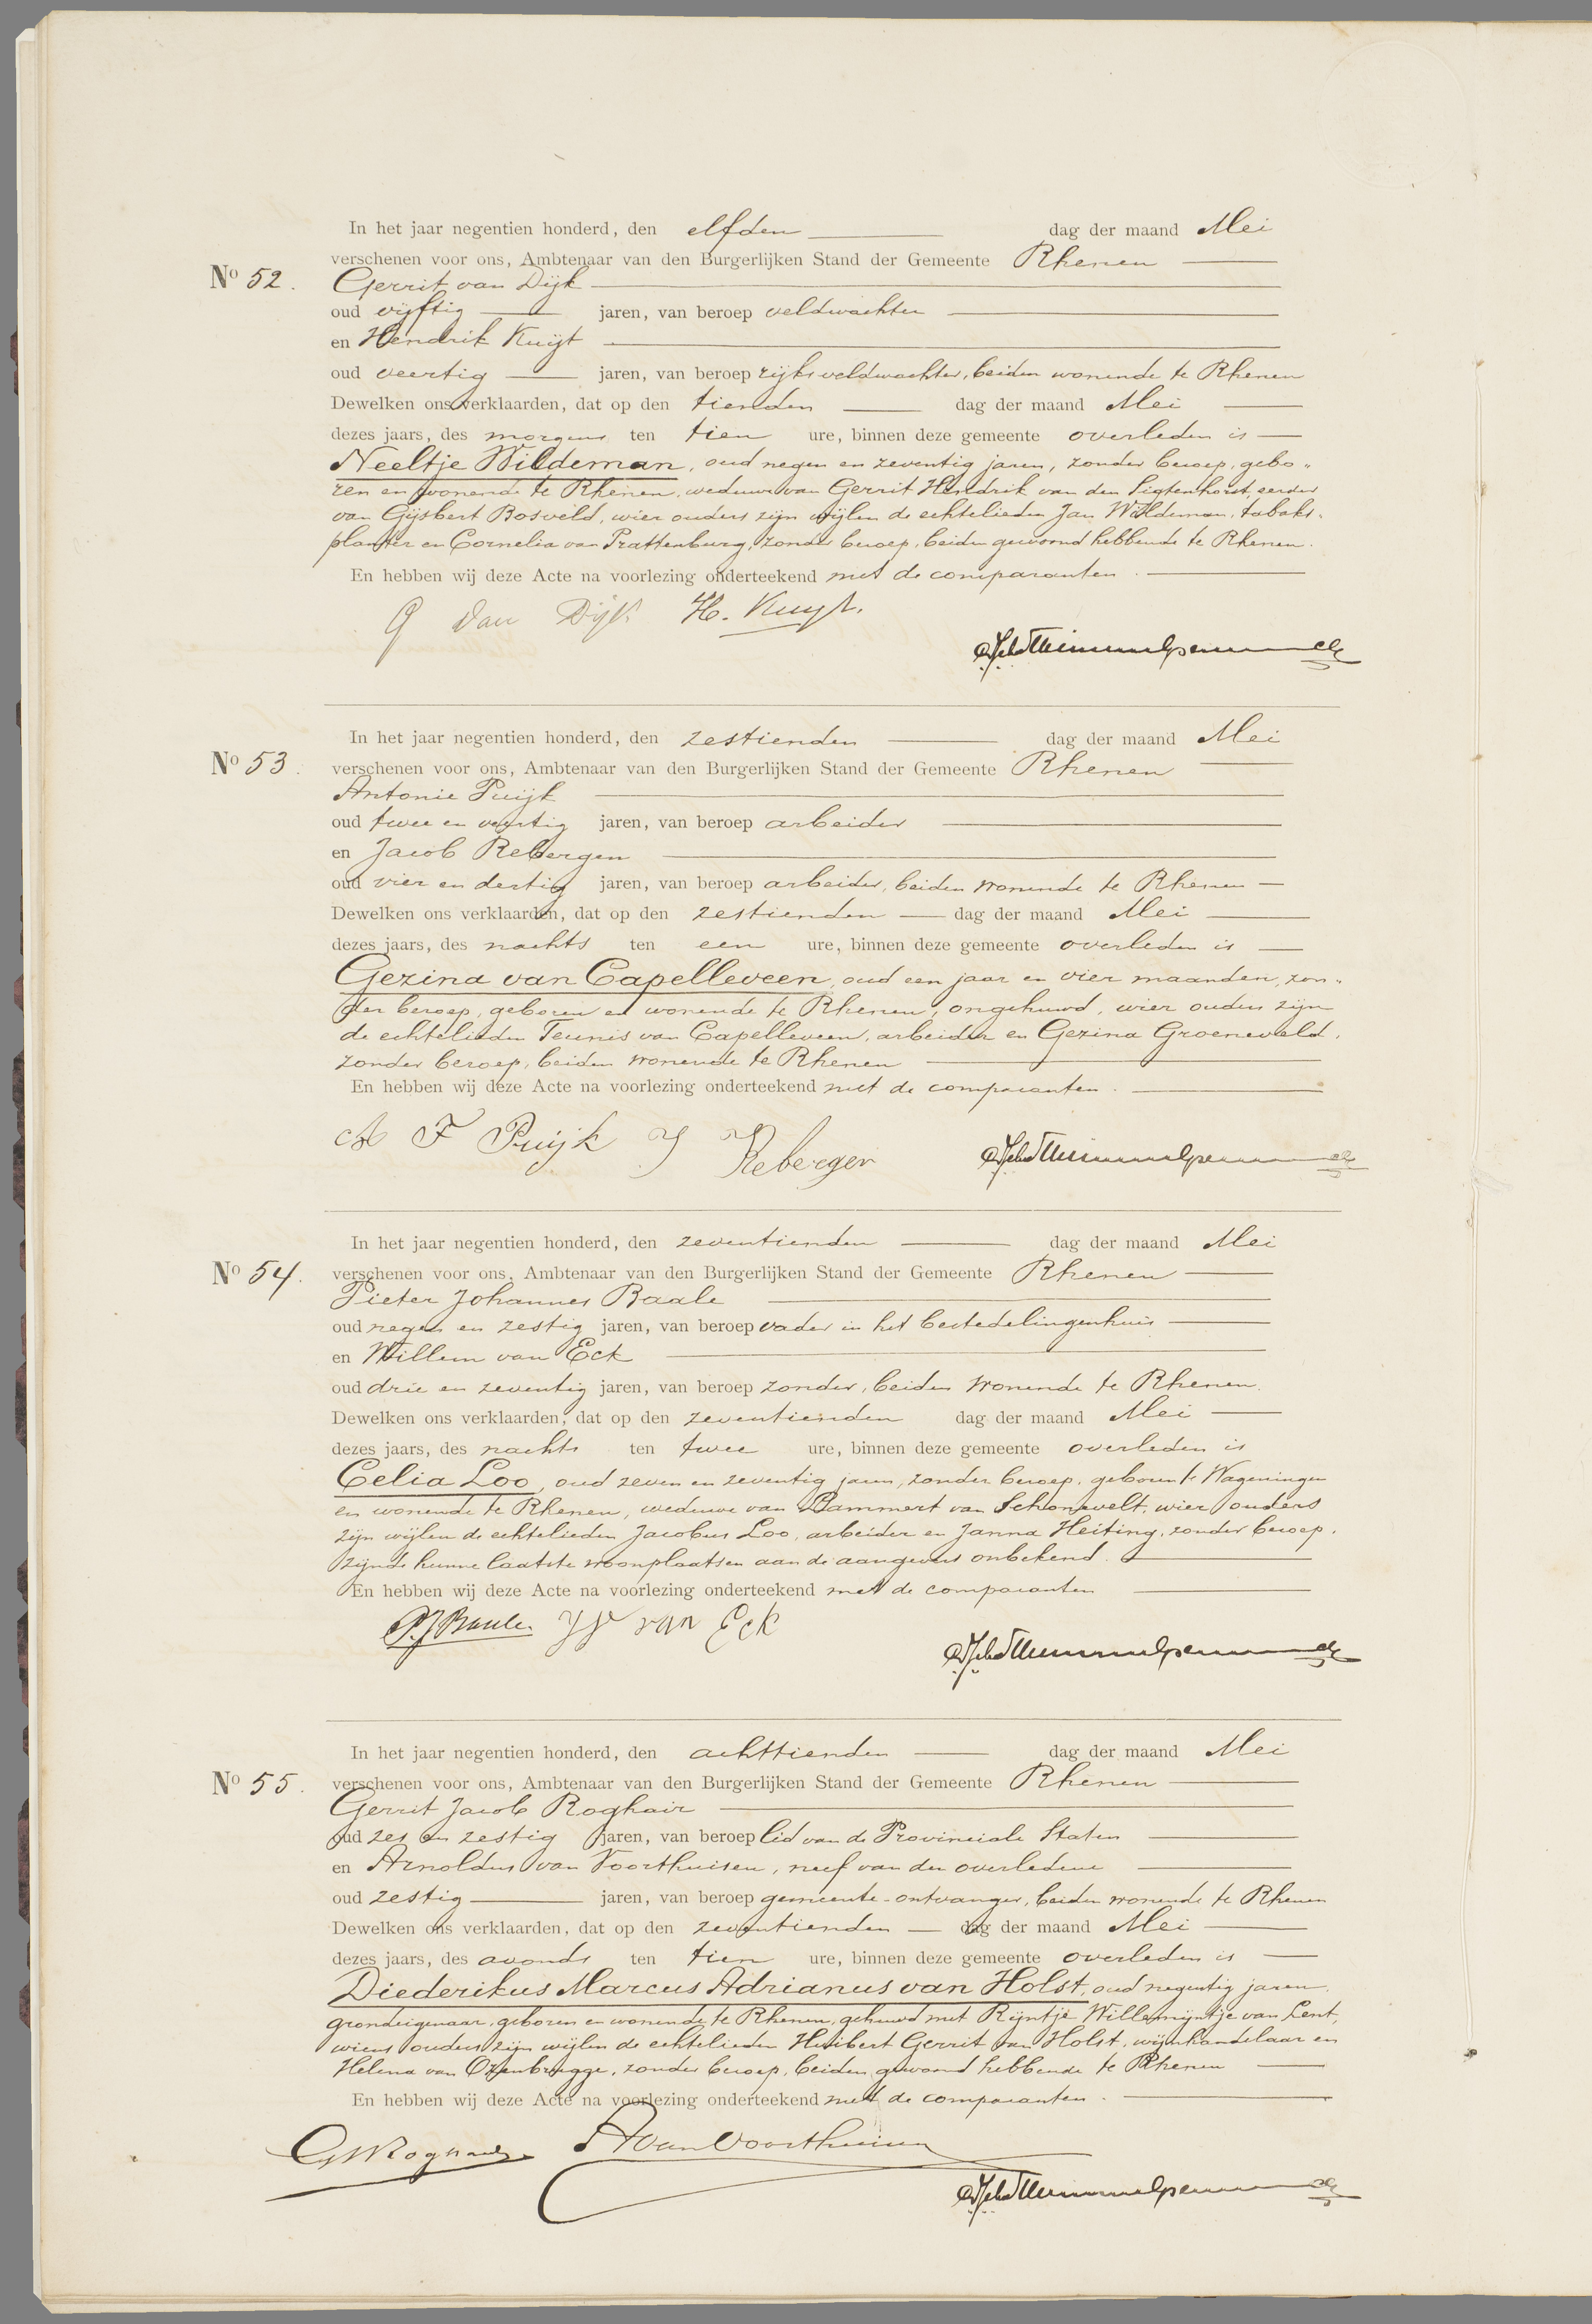 In het jaar negentien honderd, den elfden dag der maand Mei
verschenen voor ons, Ambtenaar van den Burgerlijken Stand der Gemeente Rhenen
No 52. Gerrit van Dijk
oud vijftig jaren, van beroep veldwachter
en Hendrik Kuijt
oud veertig jaren, van beroep rijksveldwachter, beiden wonende te Rhenen
Dewelken ons verklaarden, dat op den tienden dag der maand Mei
dezes jaars, des morgens ten tien ure, binnen deze gemeente overleden is
Neeltje Wildeman, oud negen en zeventig jaren, zonder beroep, gebo„
ren en wonende te Rhenen, weduwe van Gerrit Hendrik van den Sigtenhorst, eerder
van Gijsbert Bosveld, wier ouders zijn wijlen de echtelieden Jan Wildeman, tabaks„
planter en Cornelia van Prattenburg, zonder beroep, beiden gewoond hebbende te Rhenen.
En hebben wij deze Acte na voorlezing onderteekend met de comparanten.
G van Dijk H. Kuijt.
In het jaar negentien honderd, den zestienden dag der maand Mei
No 53. verschenen voor ons, Ambtenaar van den Burgerlijken Stand der Gemeente Rhenen
Antonie Puijk
oud twee en veertig jaren, van beroep arbeider
en Jacob Rebergen
oud vier en dertig jaren, van beroep arbeider, beiden wonende te Rhenen
Dewelken ons verklaarden, dat op den zestienden dag der maand Mei
dezes jaars, des nachts ten een ure, binnen deze gemeente overleden is
Gezina van Capelleveen, oud een jaar en vier maanden, zon„
der beroep, geboren en wonende te Rhenen, ongehuwd, wier ouders zijn
de echtelieden Teunis van Capelleveen, arbeider en Gezina Groeneveld,
zonder beroep, beiden wonende te Rhenen
En hebben wij deze Acte na voorlezing onderteekend met de comparanten.
A F Puijk J Rebergen
In het jaar negentien honderd, den zeventienden dag der maand Mei
No 54. verschenen voor ons, Ambtenaar van den Burgerlijken Stand der Gemeente Rhenen
Pieter Johannes Baale
oud negen en zestig jaren, van beroep vader in het bestedelingenhuis
en Willem van Eck
oud drie en zeventig jaren, van beroep zonder, beiden wonende te Rhenen.
Dewelken ons verklaarden, dat op den zeventienden dag der maand Mei
dezes jaars, des nachts ten twee ure, binnen deze gemeente overleden is
Celia Loo, oud zeven en zeventig jaren, zonder beroep, geboren te Wageningen
en wonende te Rhenen, weduwe van Bammert van Schonevelt, wier ouders
zijn wijlen de echtelieden Jacobus Loo, arbeider en Janna Heiting, zonder beroep,
zijnde hunne laatste woonplaatsen aan de aangevers onbekend.
En hebben wij deze Acte na voorlezing onderteekend met de comparanten
P.J Baale. W van Eck
In het jaar negentien honderd, den achttienden dag der maand Mei
No 55. verschenen voor ons, Ambtenaar van den Burgerlijken Stand der Gemeente Rhenen
Gerrit Jacob Roghair
oud zes en zestig jaren, van beroep lid van de Provinciale Staten
en Arnoldus van Voorthuisen, neef van den overledene
oud zestig jaren, van beroep gemeente-ontvanger, beiden wonende te Rhenen
Dewelken ons verklaarden, dat op den zeventienden dag der maand Mei
dezes jaars, des avonds ten tien ure, binnen deze gemeente overleden is
Diederikus Marcus Adrianus van Holst, oud negentig jaren,
grondeigenaar, geboren en wonende te Rhenen, gehuwd met Rijntje Willemijntje van Lent,
wiens ouders zijn wijlen de echtelieden Huibert Gerrit van Holst, wijnhandelaar en
Helena van Ozenbrugge, zonder beroep, beiden gewoond hebbende te Rhenen
En hebben wij deze Acte na voorlezing onderteekend met de comparanten.
A van Voorthuisen